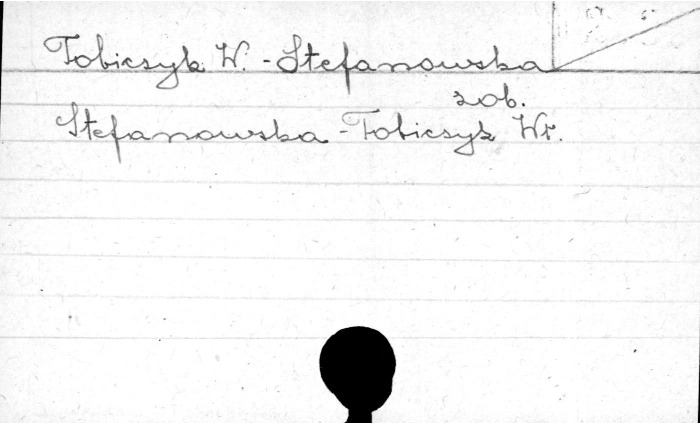 Tobiczyk W. - Stefanowska
zob.
Stefanowska - Tobiczyk Wł.